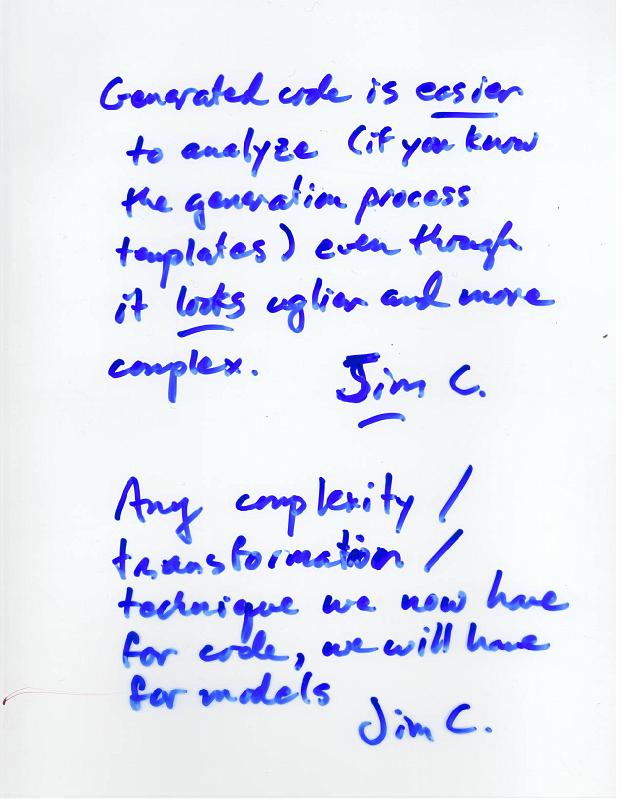 Generated code is easier
to analyze (if you know
the generation process
templates) even though
it looks uglier and more
complex.
Jim C.
Any complexity /
transformation /
technique we now have
for code, we will have
for models
Jim C.